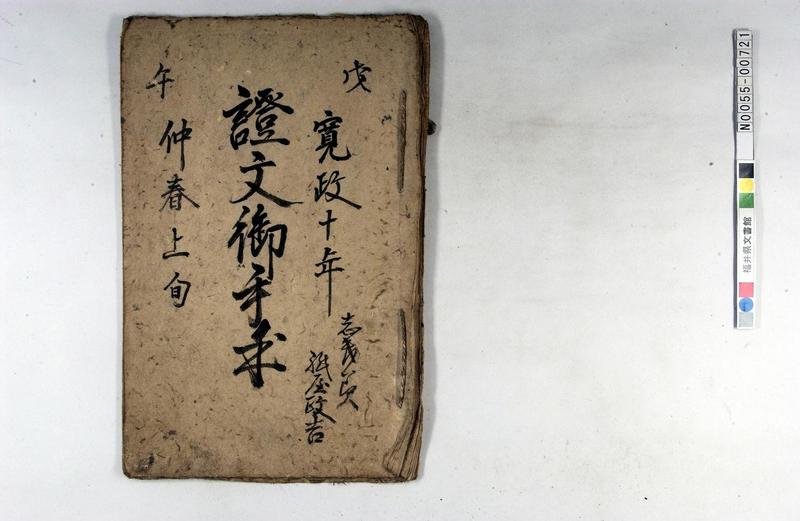 戊
寛政十年
紙屋政吉
證文御手本
午
仲春上旬
N0055-00721
福井県文書館